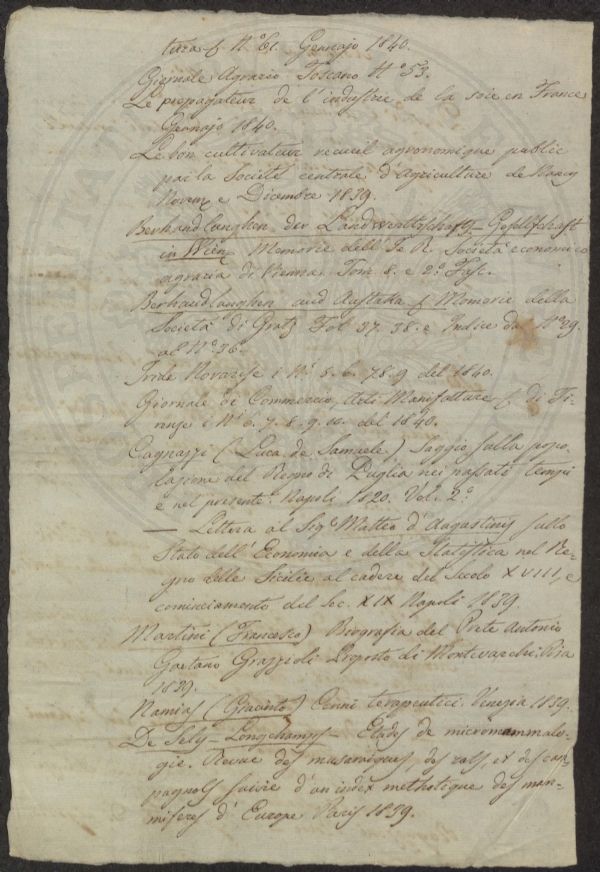 tura & N.º 61. Gennajo 1840.
Giornale Agrario Toscano N.º 53.
Le propagateur de l'industrie de la soie en France
Gennajo 1840.
Le bon cultivateur recueil agronomique publié
par la Société centrale d'Agriculture de Nancy
Novem.e e Dicembre 1839.
Berhandlanghen der Landwerttschafts-Gesellschaft
in Wien Memorie dell' I e R. Società economico
agraria di Vienna. Tom 8. e 2.º Fasc.
Berhandlaughen und & Memorie della
Società di Gratz Fol 37. 38. e Indice dal N.º 29
al N.º 36.
Iride Novarese i N.i 5. 6. 7.8.9 del 1840.
Giornale di Commercio, Arti Manifatture & di Fi-
renze i N.i 6. 7. 8. 9. 10. del 1840.
Cagnazzi (Luca de Samuele) Saggio sulla popo-
lazione del Regno di Puglia nei passati tempi
e nel presente. Napoli 1820. Vol. 2.º
— Lettera al Sig.r Matteo d'Augustinis sullo
Stato dell'Economia e della Statistica nel Re-
gno delle Sicilie al cadere del Secolo XVIII, e
cominciamento del Sec. XIX Napoli 1839.
Martini (Francesco) Biografia del Prete Antonio
Gaetano Grazzioli Proposto di Montevarchi Pisa
1839.
Namias (Giacinto) Cenni terapeutici. Venezia 1839.
De Sely-Longchamps Etudes de micromammalo-
gie. Revue des musaraignes, des rats, et des cam-
pagnols suivie d'un index methotique des mam-
miferes d'Europe Paris 1839.